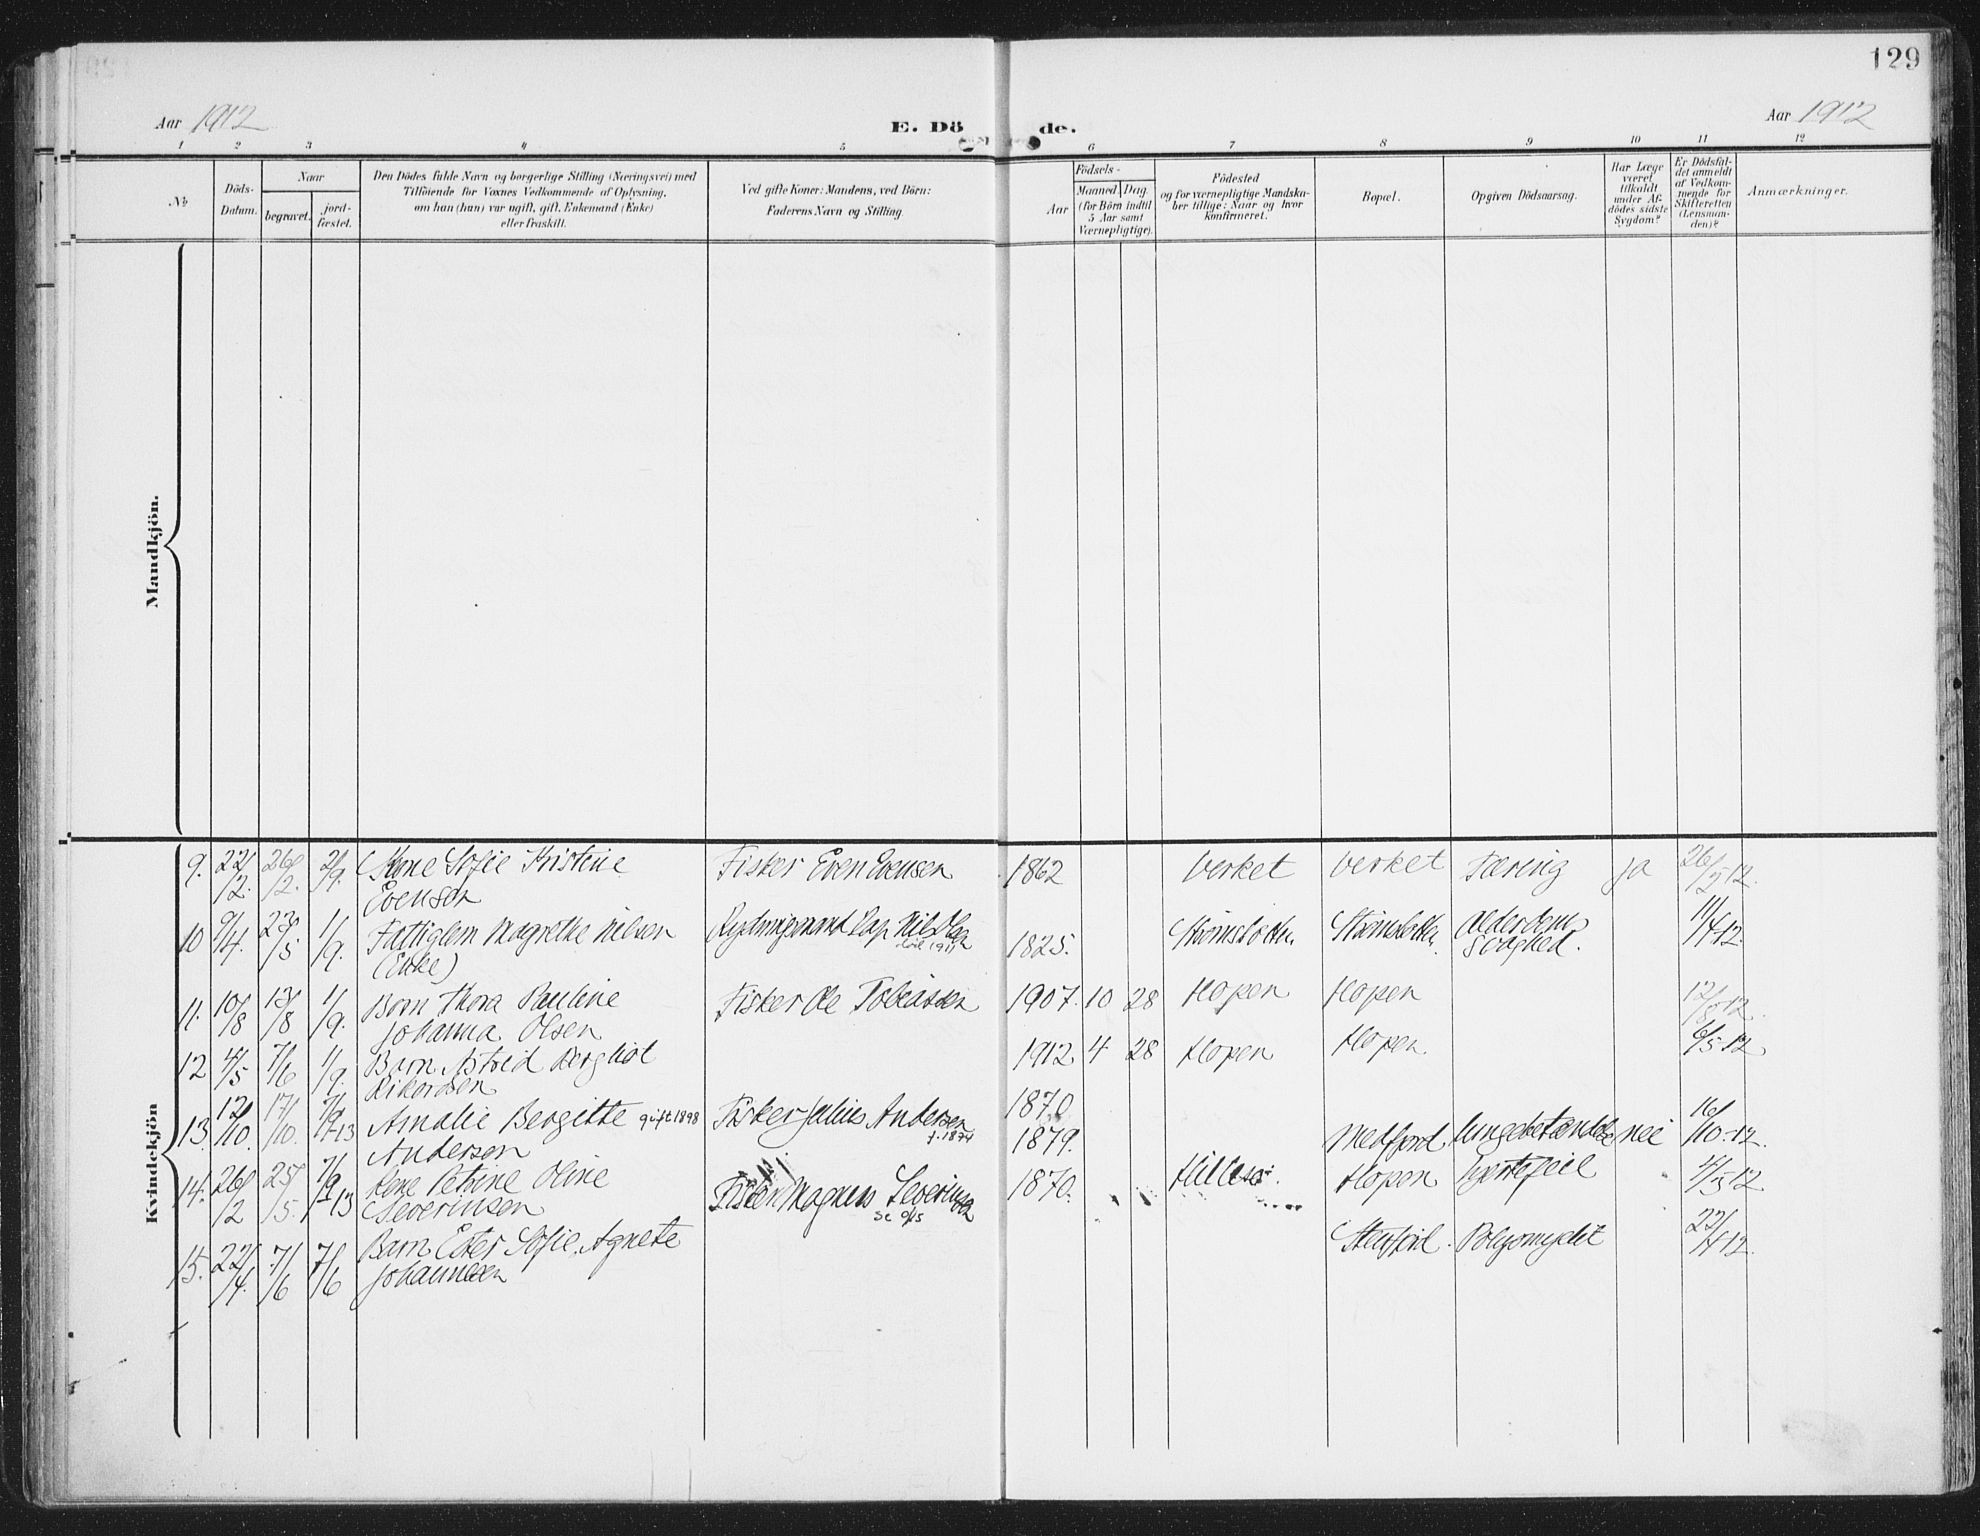 129
Aar 1912
E. Dö de.
Aar 1912
1 2 3 4 5 6 7 8 9 10 11 12
No
Döds-
Datum.
Naar
begravet.
jord-
fæstet.
Den Dödes fulde Navn og borgerlige Stilling (Næringsvei) med
Tilföiende for Voxnes Vedkommende af Oplysning,
om han (hun) var ugift, gift, Enkemand (Enke)
eller fraskilt.
Ved gifte Koner: Mandens, ved Börn:
Faderens Navn og Stilling.
Födsels-
Aar
Maaned Dag
(for Börn indtil
5 Aar samt
Værnepligtige).
Födested
og for værnepligtige Mandska-
ber tillige: Naar og hvor
konfirmeret.
Bopæl.
Opgiven Dödsaarsag.
Har Læge
været
tilkaldt
under Af-
dödes sidste
Sygdom?
Er Dödsfal-
det anmeldt
af Vedkom-
mende for
Skifteretten
(Lensman-
den)?
Anmærkninger.
Mandkjön.
Kvindekjön
9. 22/2. 26/2. 2/9. Kone Sofie Kristine Fisker Even Evensen 1862 Verket Verket Tæring ja
Evensen
10 9/4. 23/5 1/9. Fattiglem Magrethe Nilsen 1825. Alderdoms
(Enke) svaghed.
11. 10/8 13/8 1/9. Barn Thora Pauline Fisker Ole Tobiassen 1907. 10 28 Hopen Hopen 12/8-12.
Johanna Olsen
12 4/5 7/6 1/9. Barn Astrid Bergliot 1912 4 28 Hopen Hopen. 6/5-12
Rikardsen
13. 12/10. 17/10. 7/9-13 Amalie Bergitte gift 1898 Fisker Julius Andersen 1870
Andersen f. 1874 1879. Medfjord nei 16/10-12.
14. 26/2 25/5. 7/9-13 Kone Petrine Oline Fisker Magnus Severinsen 1870. Hillesø. Hopen hjertefeil
Severinsen
15. 22/4. 7/6 7/6 Barn Ester Sofie Agnete 22/4-12.
Johannesen